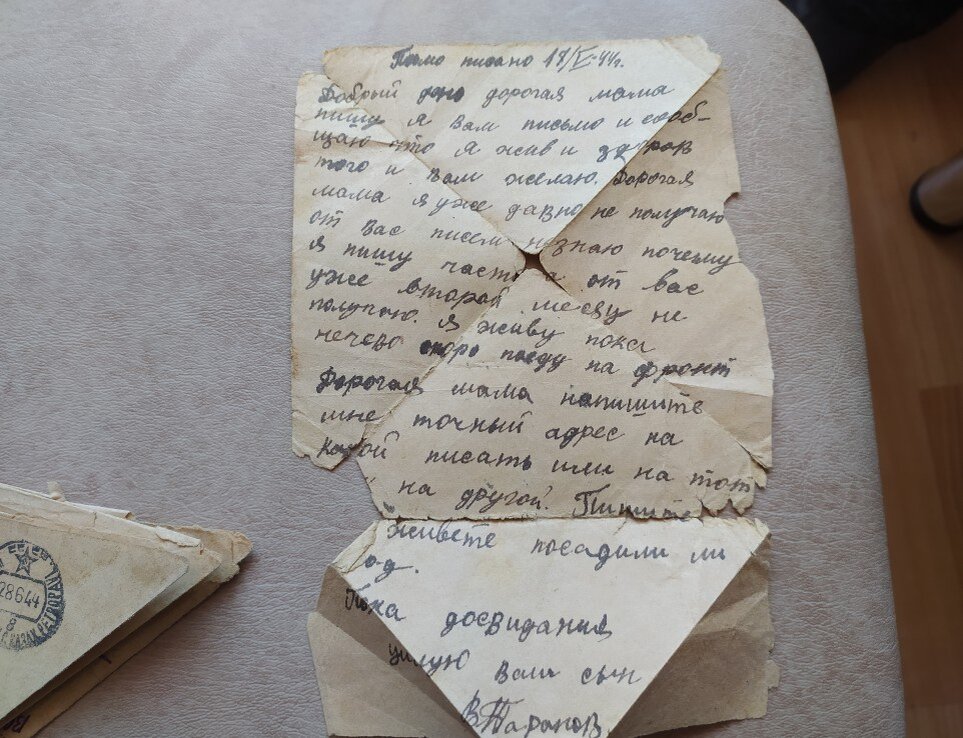 Письмо писано 18/V-44г.
Добрый день дорогая мама
пишу я Вам письмо и сооб-
щаю что я жив и здоров
того и Вам желаю. Дорогая
мама я уже давно не получаю
от Вас писем незнаю почему
я пишу часто а от вас
уже второй месяц не
получаю. Я живу пока
нечево скоро поеду на фронт
Дорогая мама напишите
мне точный адрес на
какой писать или на тот
на другой. Пишите
живете посадили ли
Пока досвидания
целую Вам сын
В Таранов
28644